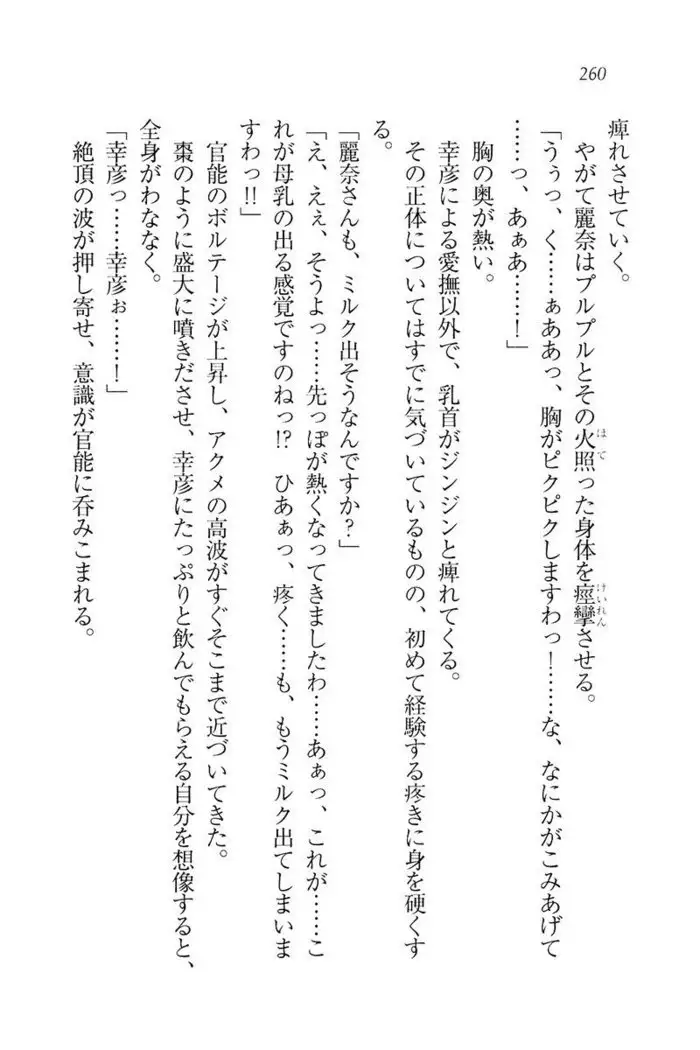 260
痺れさせていく。
やがて麗奈はプルプルとその火照った身体を痙攣させる。
「うぅっ、く……ぁああっ、胸がピクピクしますわっ！……な、なにかがこみあげて
……っ、あぁあ……！」
胸の奥が熱い。
幸彦による愛撫以外で、乳首がジンジンと痺れてくる。
その正体についてはすでに気づいているものの、初めて経験する疼きに身を硬くす
る。
「麗奈さんも、ミルク出そうなんですか？」
「え、えぇ、そうよっ……先っぽが熱くなってきましたわ……あぁっ、これが……こ
れが母乳の出る感覚ですのねっ!?　ひあぁっ、疼く……も、もうミルク出てしまいま
すわっ!!」
官能のボルテージが上昇し、アクメの高波がすぐそこまで近づいてきた。
棗のように盛大に噴きださせ、幸彦にたっぷりと飲んでもらえる自分を想像すると、
全身がわななく。
「幸彦っ……幸彦ぉ……！」
絶頂の波が押し寄せ、意識が官能に呑みこまれる。